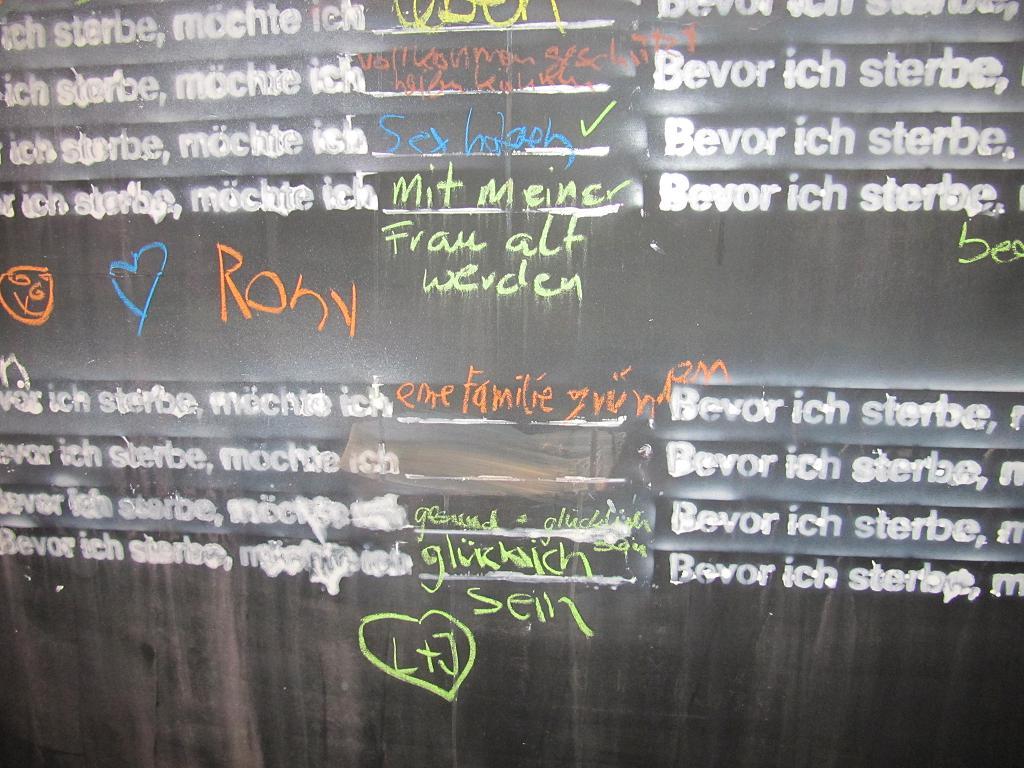 ich sterbe, möchte ich Leben Bevor ich sterbe,
ich sterbe, möchte ich vollkommen Bevor ich sterbe,
ich sterbe, möchte ich Sex haben ✓ Bevor ich sterbe,
r ich sterbe, möchte ich Mit Meiner Bevor ich sterbe,
Frau alt
werden
Rony
n.
vor ich sterbe, möchte ich eine Familie gründen Bevor ich sterbe, m
evor ich sterbe, möchte ich Bevor ich sterbe, m
Bevor ich sterbe, möchte ich gesund + glücklich Bevor ich sterbe, m
sein
Bevor ich sterbe, möchte ich glücklich Bevor ich sterbe, m
sein
L+J